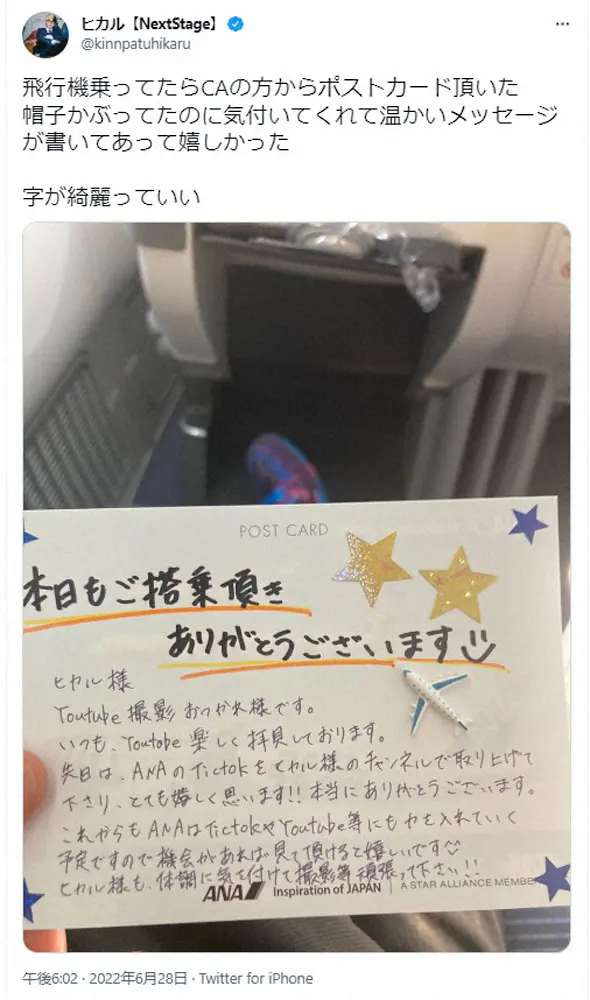 ヒカル【NextStage】
@kinnpatuhikaru
飛行機乗ってたらCAの方からポストカード頂いた
帽子かぶってたのに気付いてくれて温かいメッセージ
が書いてあって嬉しかった
字が綺麗っていい
POST CARD
本日もご搭乗頂き
ありがとうございます
ヒカル様
Youtube撮影おつかれ様です。
いつも、Youtube楽しく拝見しております。
先日は、ANAのTictokをヒカル様のチャンネルで取り上げて
下さり、とても嬉しく思います!!本当にありがとうございます。
これからもANAはTictokやYoutube等にも力を入れていく
予定ですので機会があれば見て頂けると嬉しいです
ヒカル様も、体調に気を付けて撮影等頑張って下さい!!
ANA Inspiration of JAPAN A STAR ALLIANCE MEMBER
午後6:02 · 2022年6月28日 · Twitter for iPhone